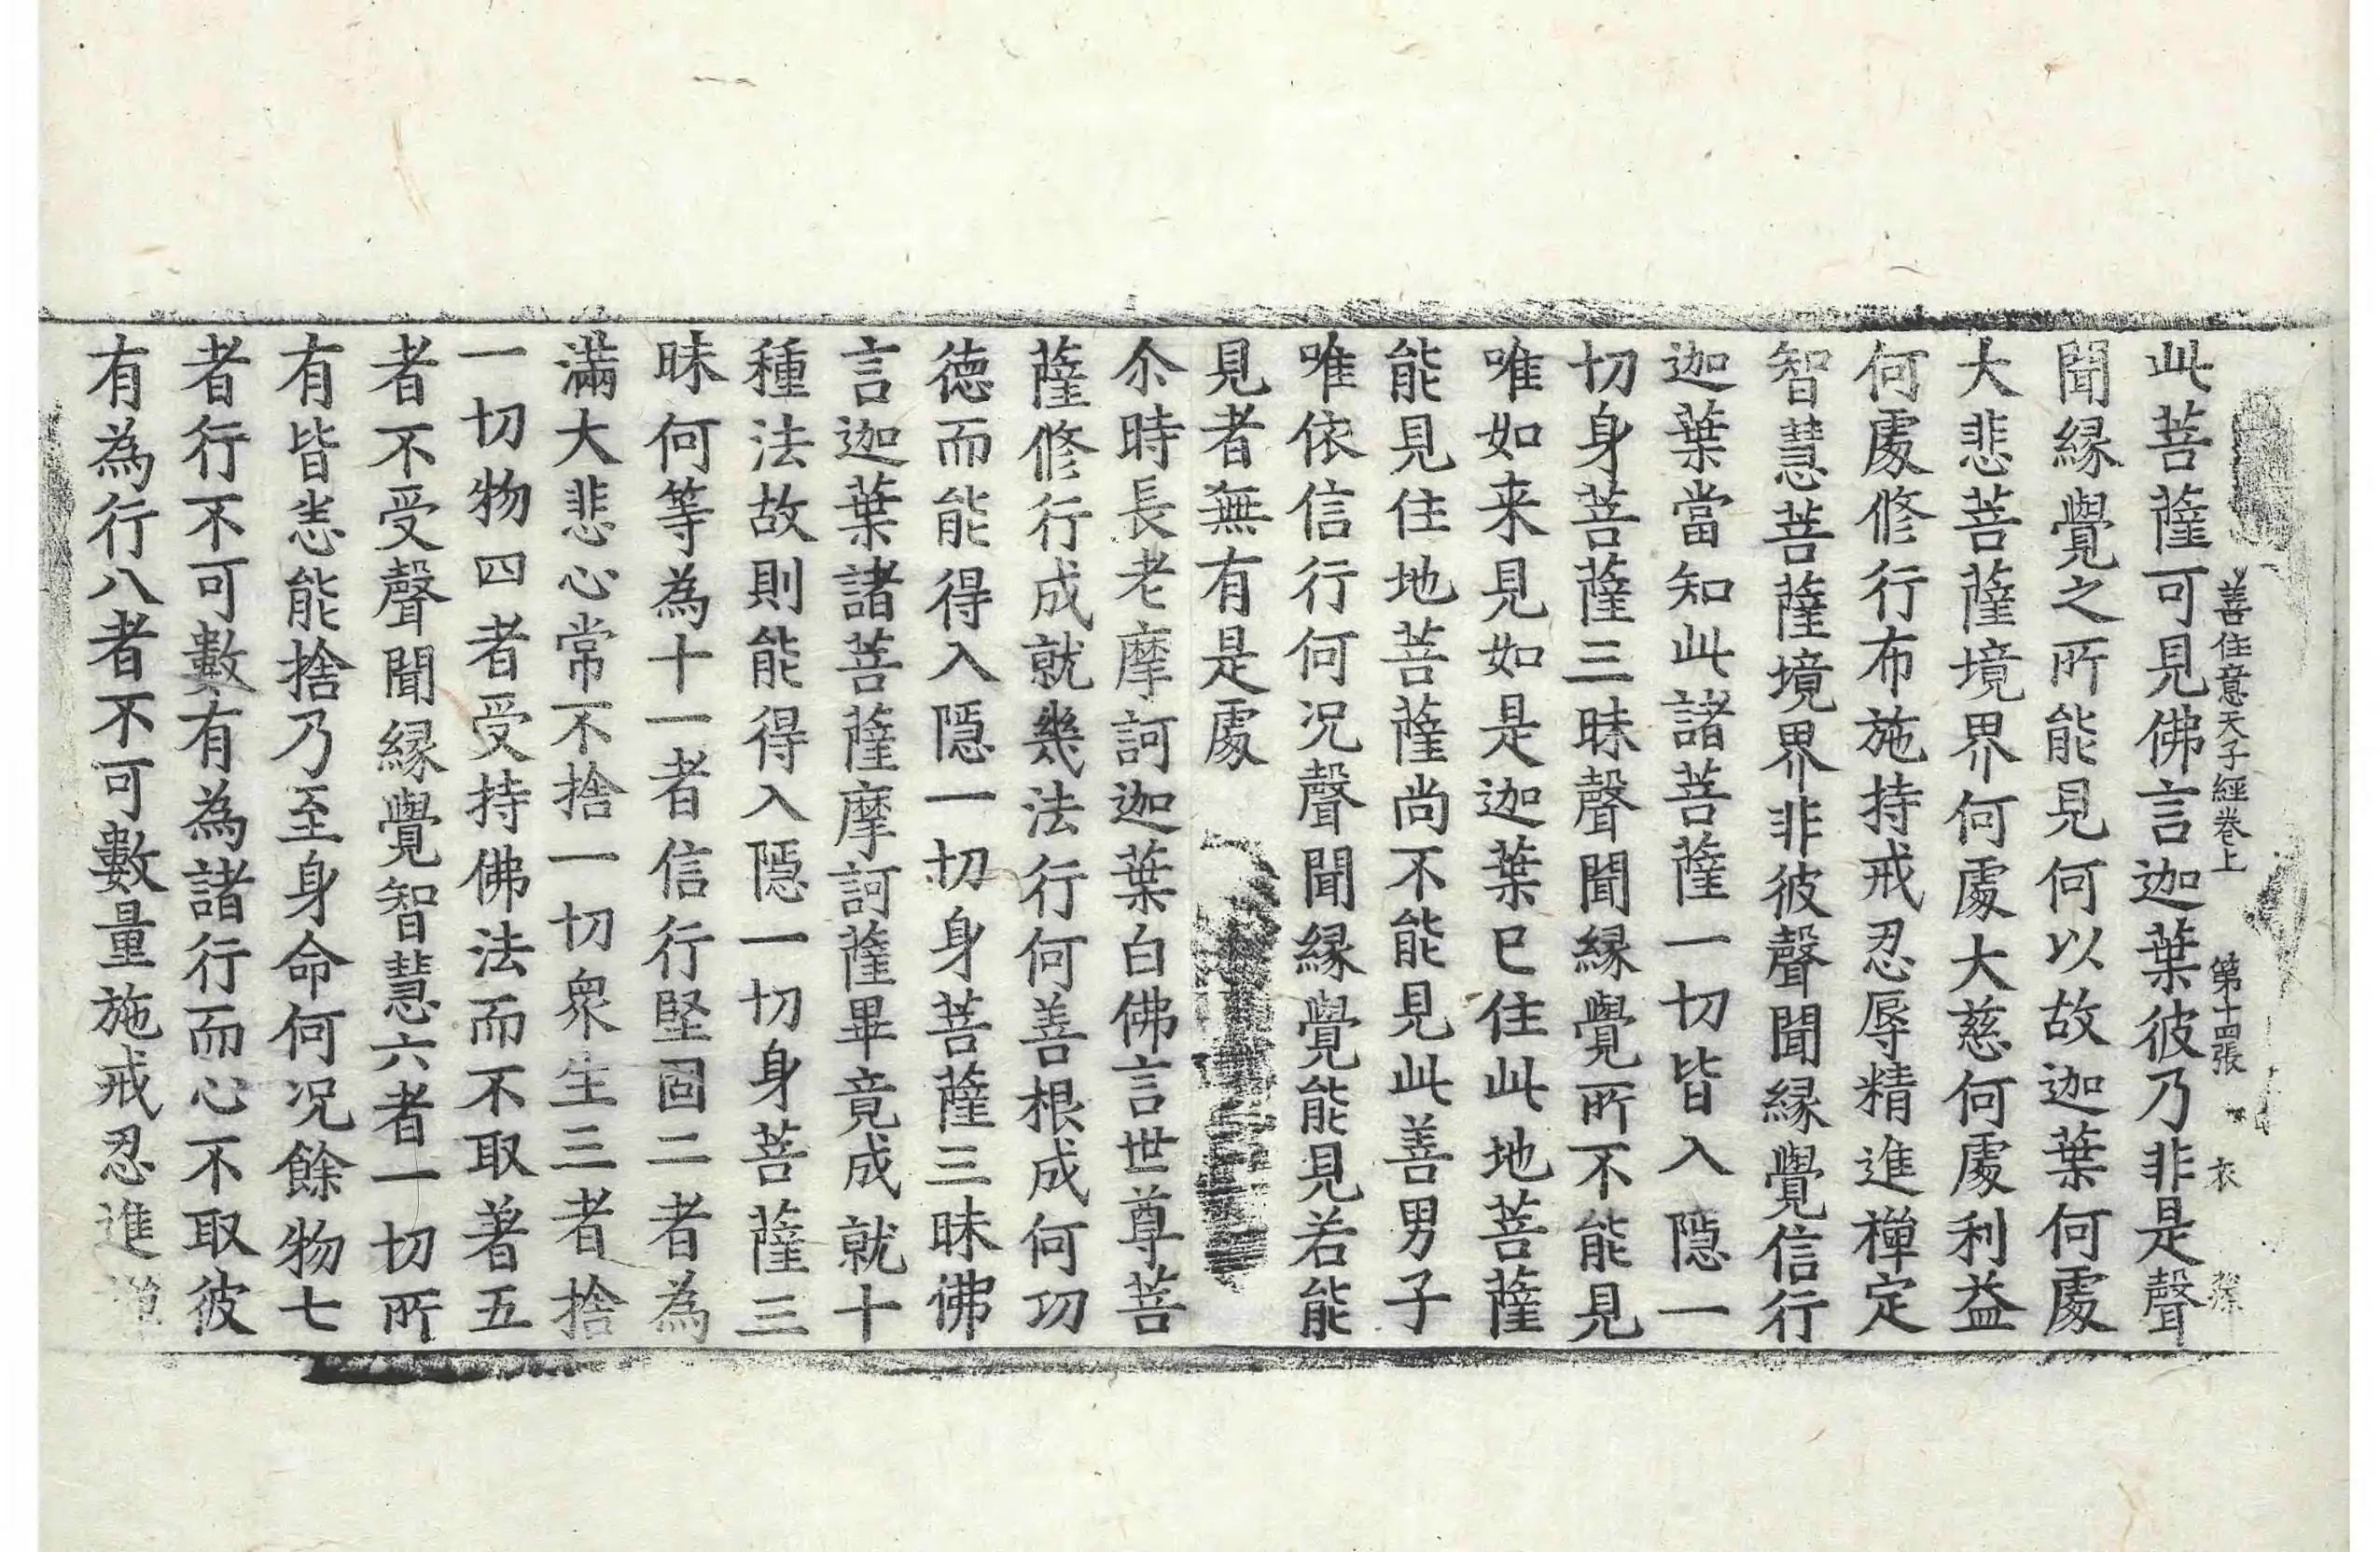 善住意天子經卷上 第十四張 衣
此菩薩可見佛言迦葉彼乃非是聲
聞縁覺之所能見何以故迦葉何處
大悲菩薩境界何處大慈何處利益
何處修行布施持戒忍辱精進禅定
智慧菩薩境界非彼聲聞縁覺信行
迦葉當知此諸菩薩一切皆入隱一
切身菩薩三昧聲聞縁覺所不能見
唯如来見如是迦葉已住此地菩薩
能見住地菩薩尚不能見此善男子
唯依信行何况聲聞縁覺能見若能
見者無有是處
尒時長老摩訶迦葉白佛言世尊菩
薩修行成就幾法行何善根成何功
徳而能得入隱一切身菩薩三昧佛
言迦葉諸菩薩摩訶薩畢竟成就十
種法故則能得入隱一切身菩薩三
昧何等為十一者信行堅固二者為
滿大悲心常不捨一切衆生三者捨
一切物四者受持佛法而不取著五
者不受聲聞縁覺智慧六者一切所
有皆悉能捨乃至身命何况餘物七
者行不可數有為諸行而心不取彼
有為行八者不可數量施戒忍進禅